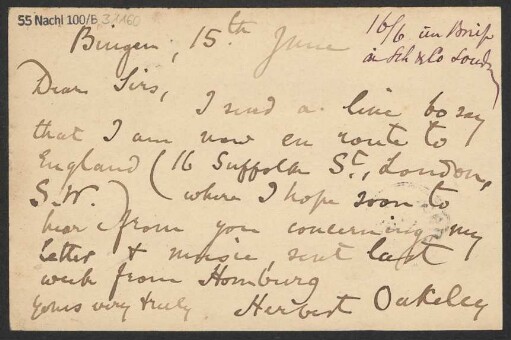 55 Nachl 100/B,37160
16/6 im Brief
Bingen, 15th June
in Sch & Co London
Dear Sirs,
I send a line to say
that I am now en route to
England (16 Suffolk St., London,
S.W.) where I hope soon to
hear from you concerning my
letter & music, sent last
week from Homburg
Yours very truly Herbert Oakeley